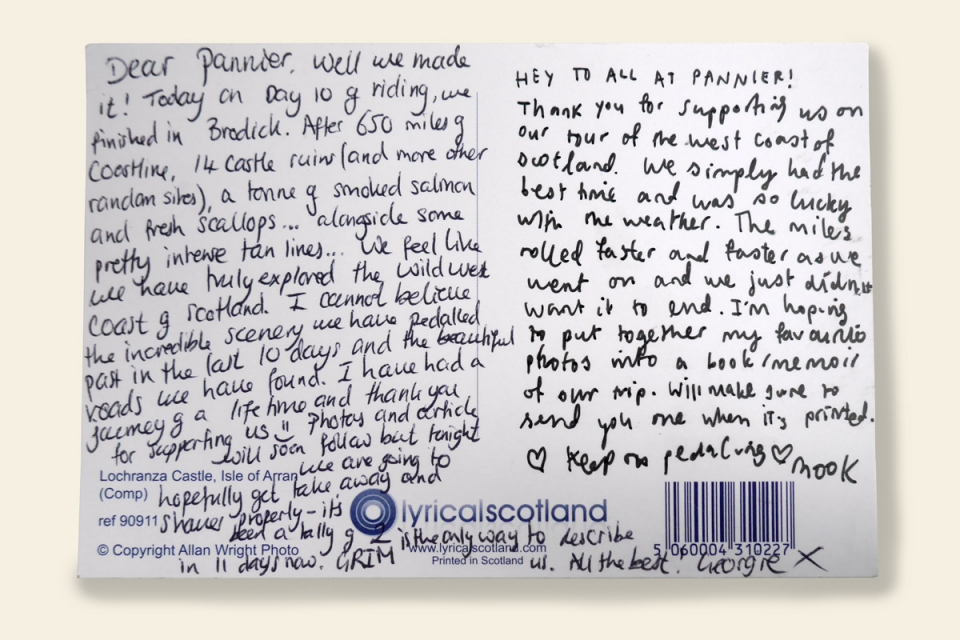 Dear Pannier, well we made
it! Today on Day 10 of riding, we
finished in Brodick. After 650 miles of
Coastline, 14 castle ruins (and more other
random sites), a tonne of smoked salmon
and fresh scallops... alongside some
pretty intense tan lines... we feel like
we have truly explored the wild west
coast of Scotland. I cannot believe
the incredible scenery we have pedalled
past in the last 10 days and the beautiful
roads we have found. I have had a
journey of a life time and thank you
for supporting us!! Photos and article
will soon follow but tonight
we are going to
hopefully get take away and
shower properly - its
been a tally of 2
in 11 days now. GRIM is the only way to describe
us. All the best! Georgie X
HEY TO ALL AT PANNIER!
Thank you for supporting us on
our tour of the west coast of
Scotland. We simply had the
best time and was so lucky
with the weather. The miles
rolled faster and faster as we
went on and we just didn't
want it to end. I'm hoping
to put together my favourite
photos into a book/memoir
of our trip. Will make sure to
send you one when it's printed.
♡ Keep on pedalling ♡ nook
Lochranza Castle, Isle of Arran
(Comp)
ref 90911
© Copyright Allan Wright Photo
lyricalscotland
www.lyricalscotland.com
Printed in Scotland
5 060004 310227